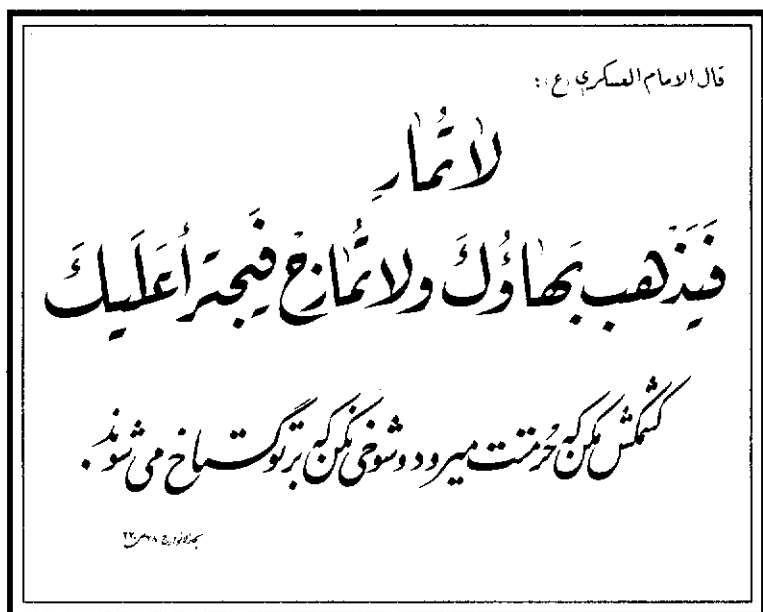 قال الامام العسکري (ع):
لا تُمارِ
فَيَذْهب بَهاؤُكَ ولا تُمازِحْ فَيُجترأ عَلَيكَ
کشمکش مکن که حُرمتت میرود و شوخی مکن که بر تو گستاخ می شوند.
بحارالانوار ج ٧٨ ص